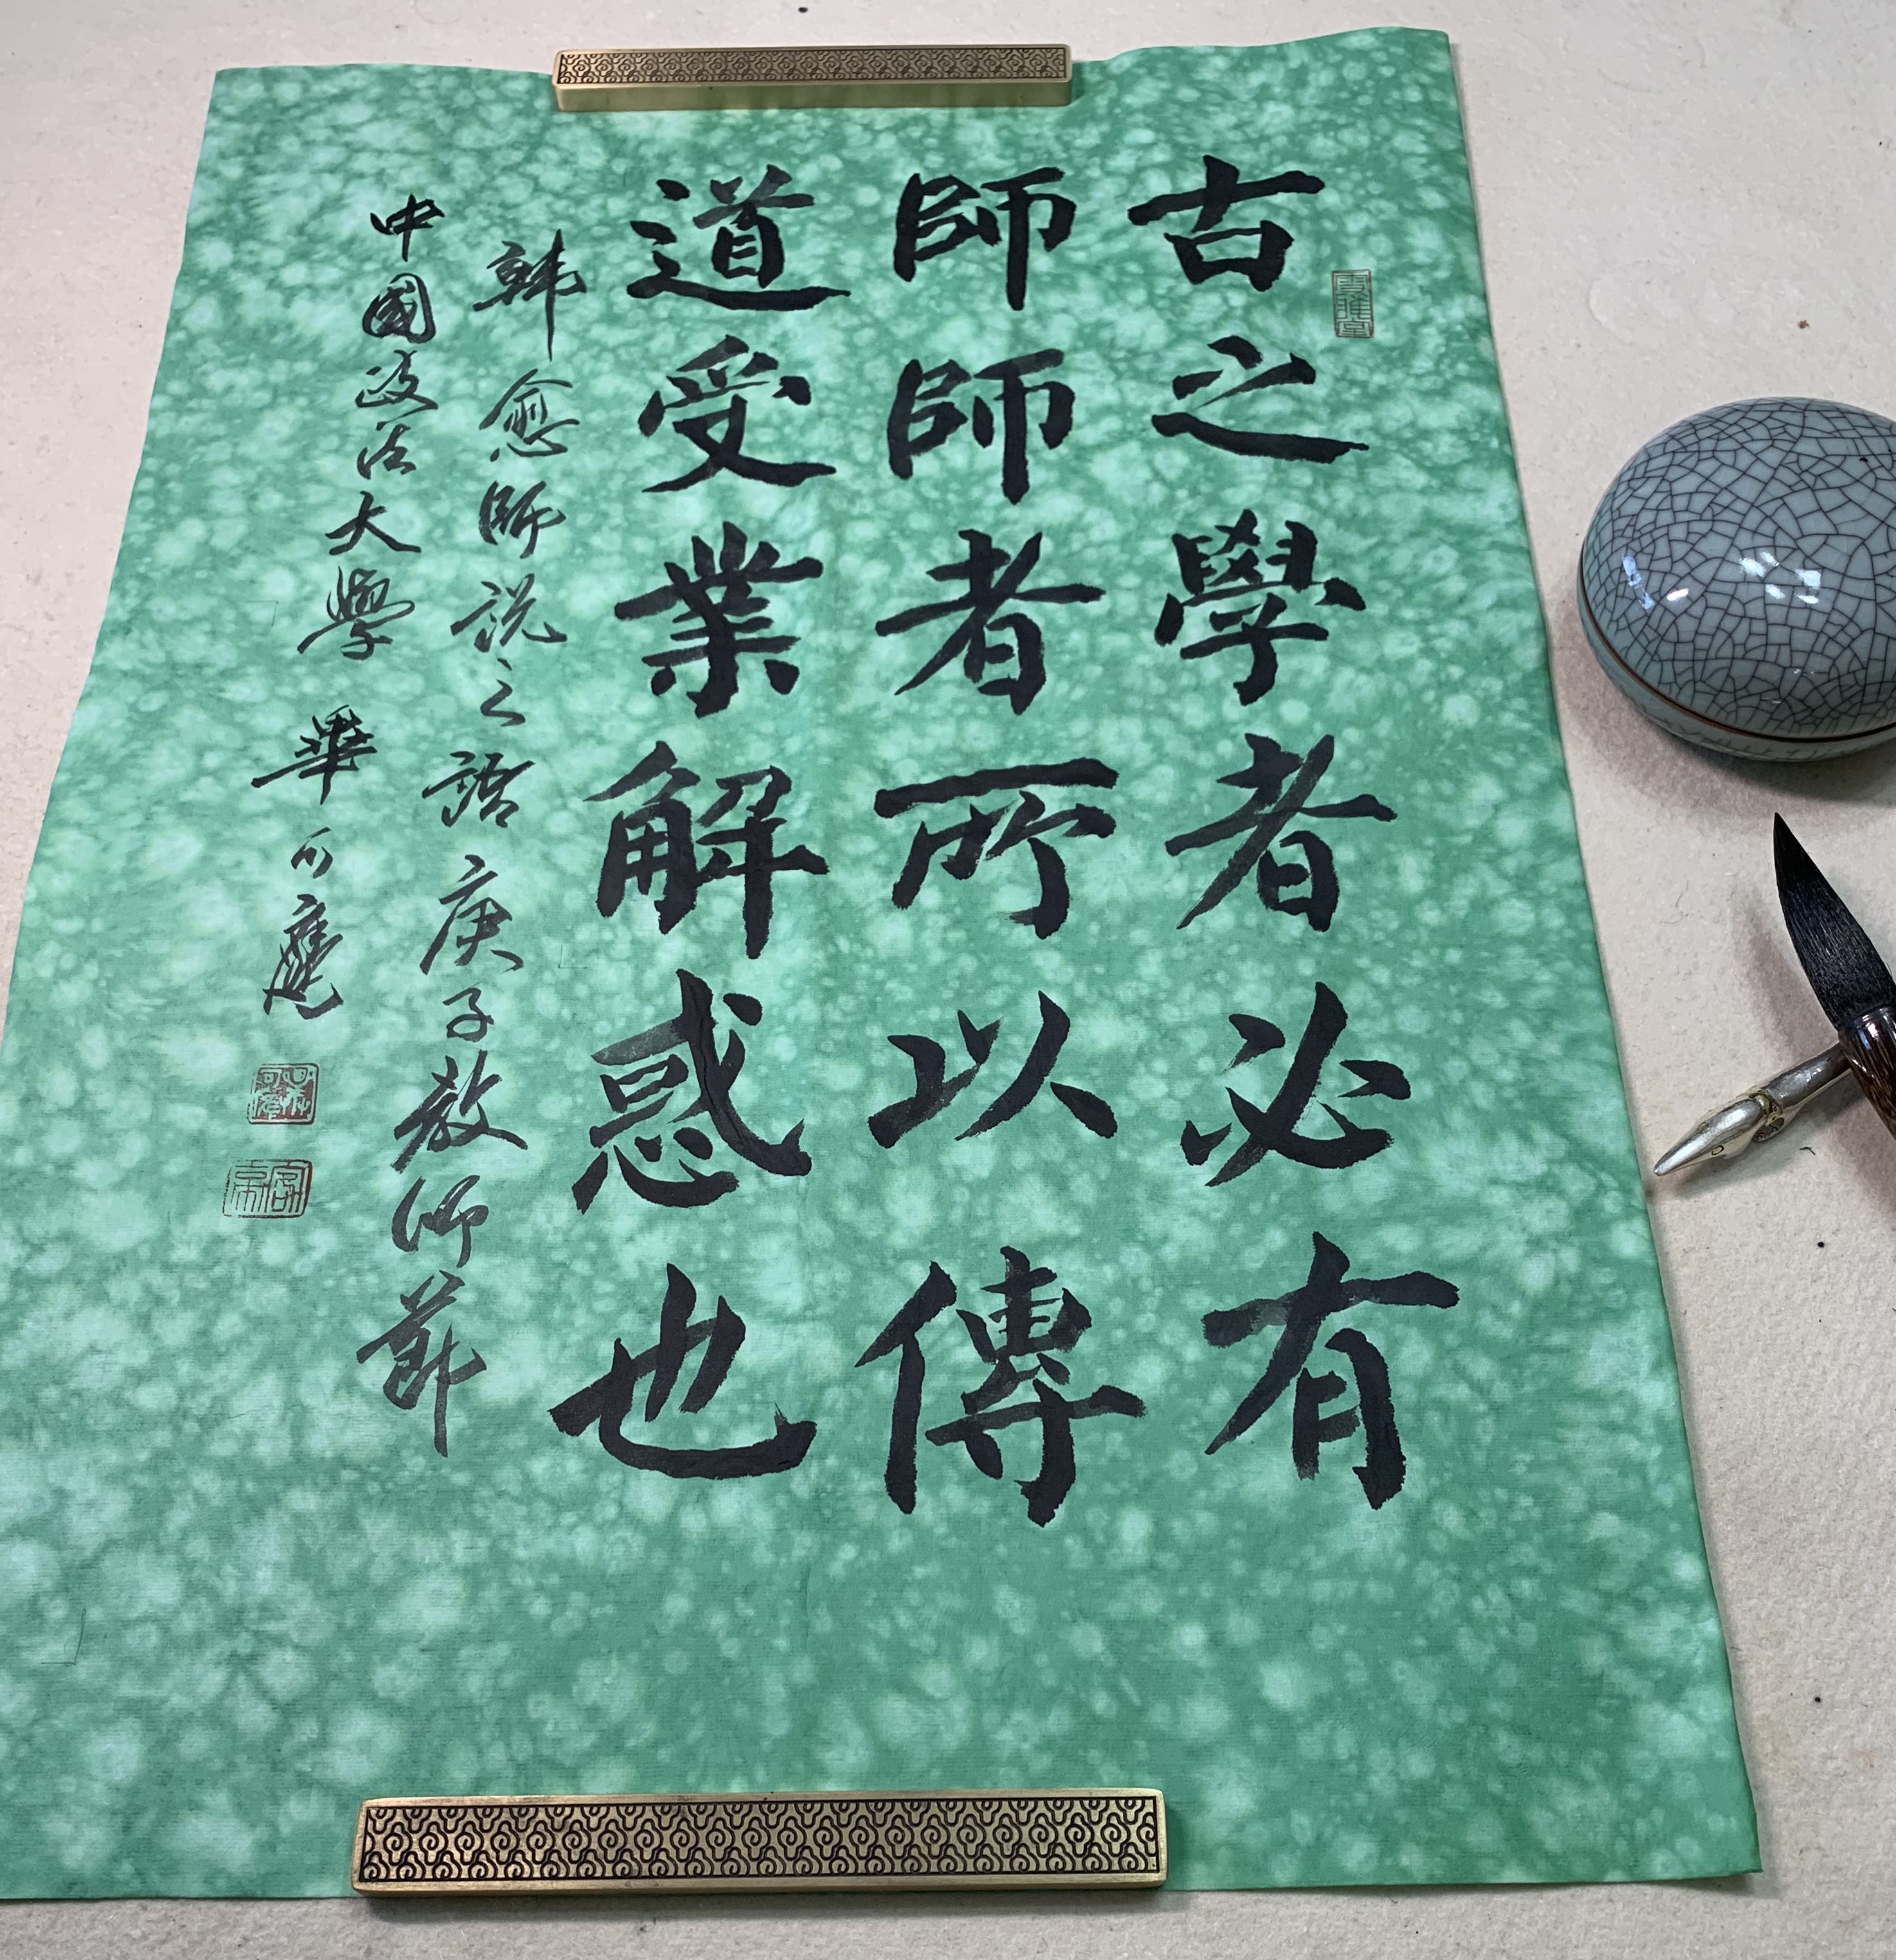 古之學者必有
師師者所以傳
道受業解惑也
韩愈師説之語 庚子教師節
中國政法大學 畢可鹰